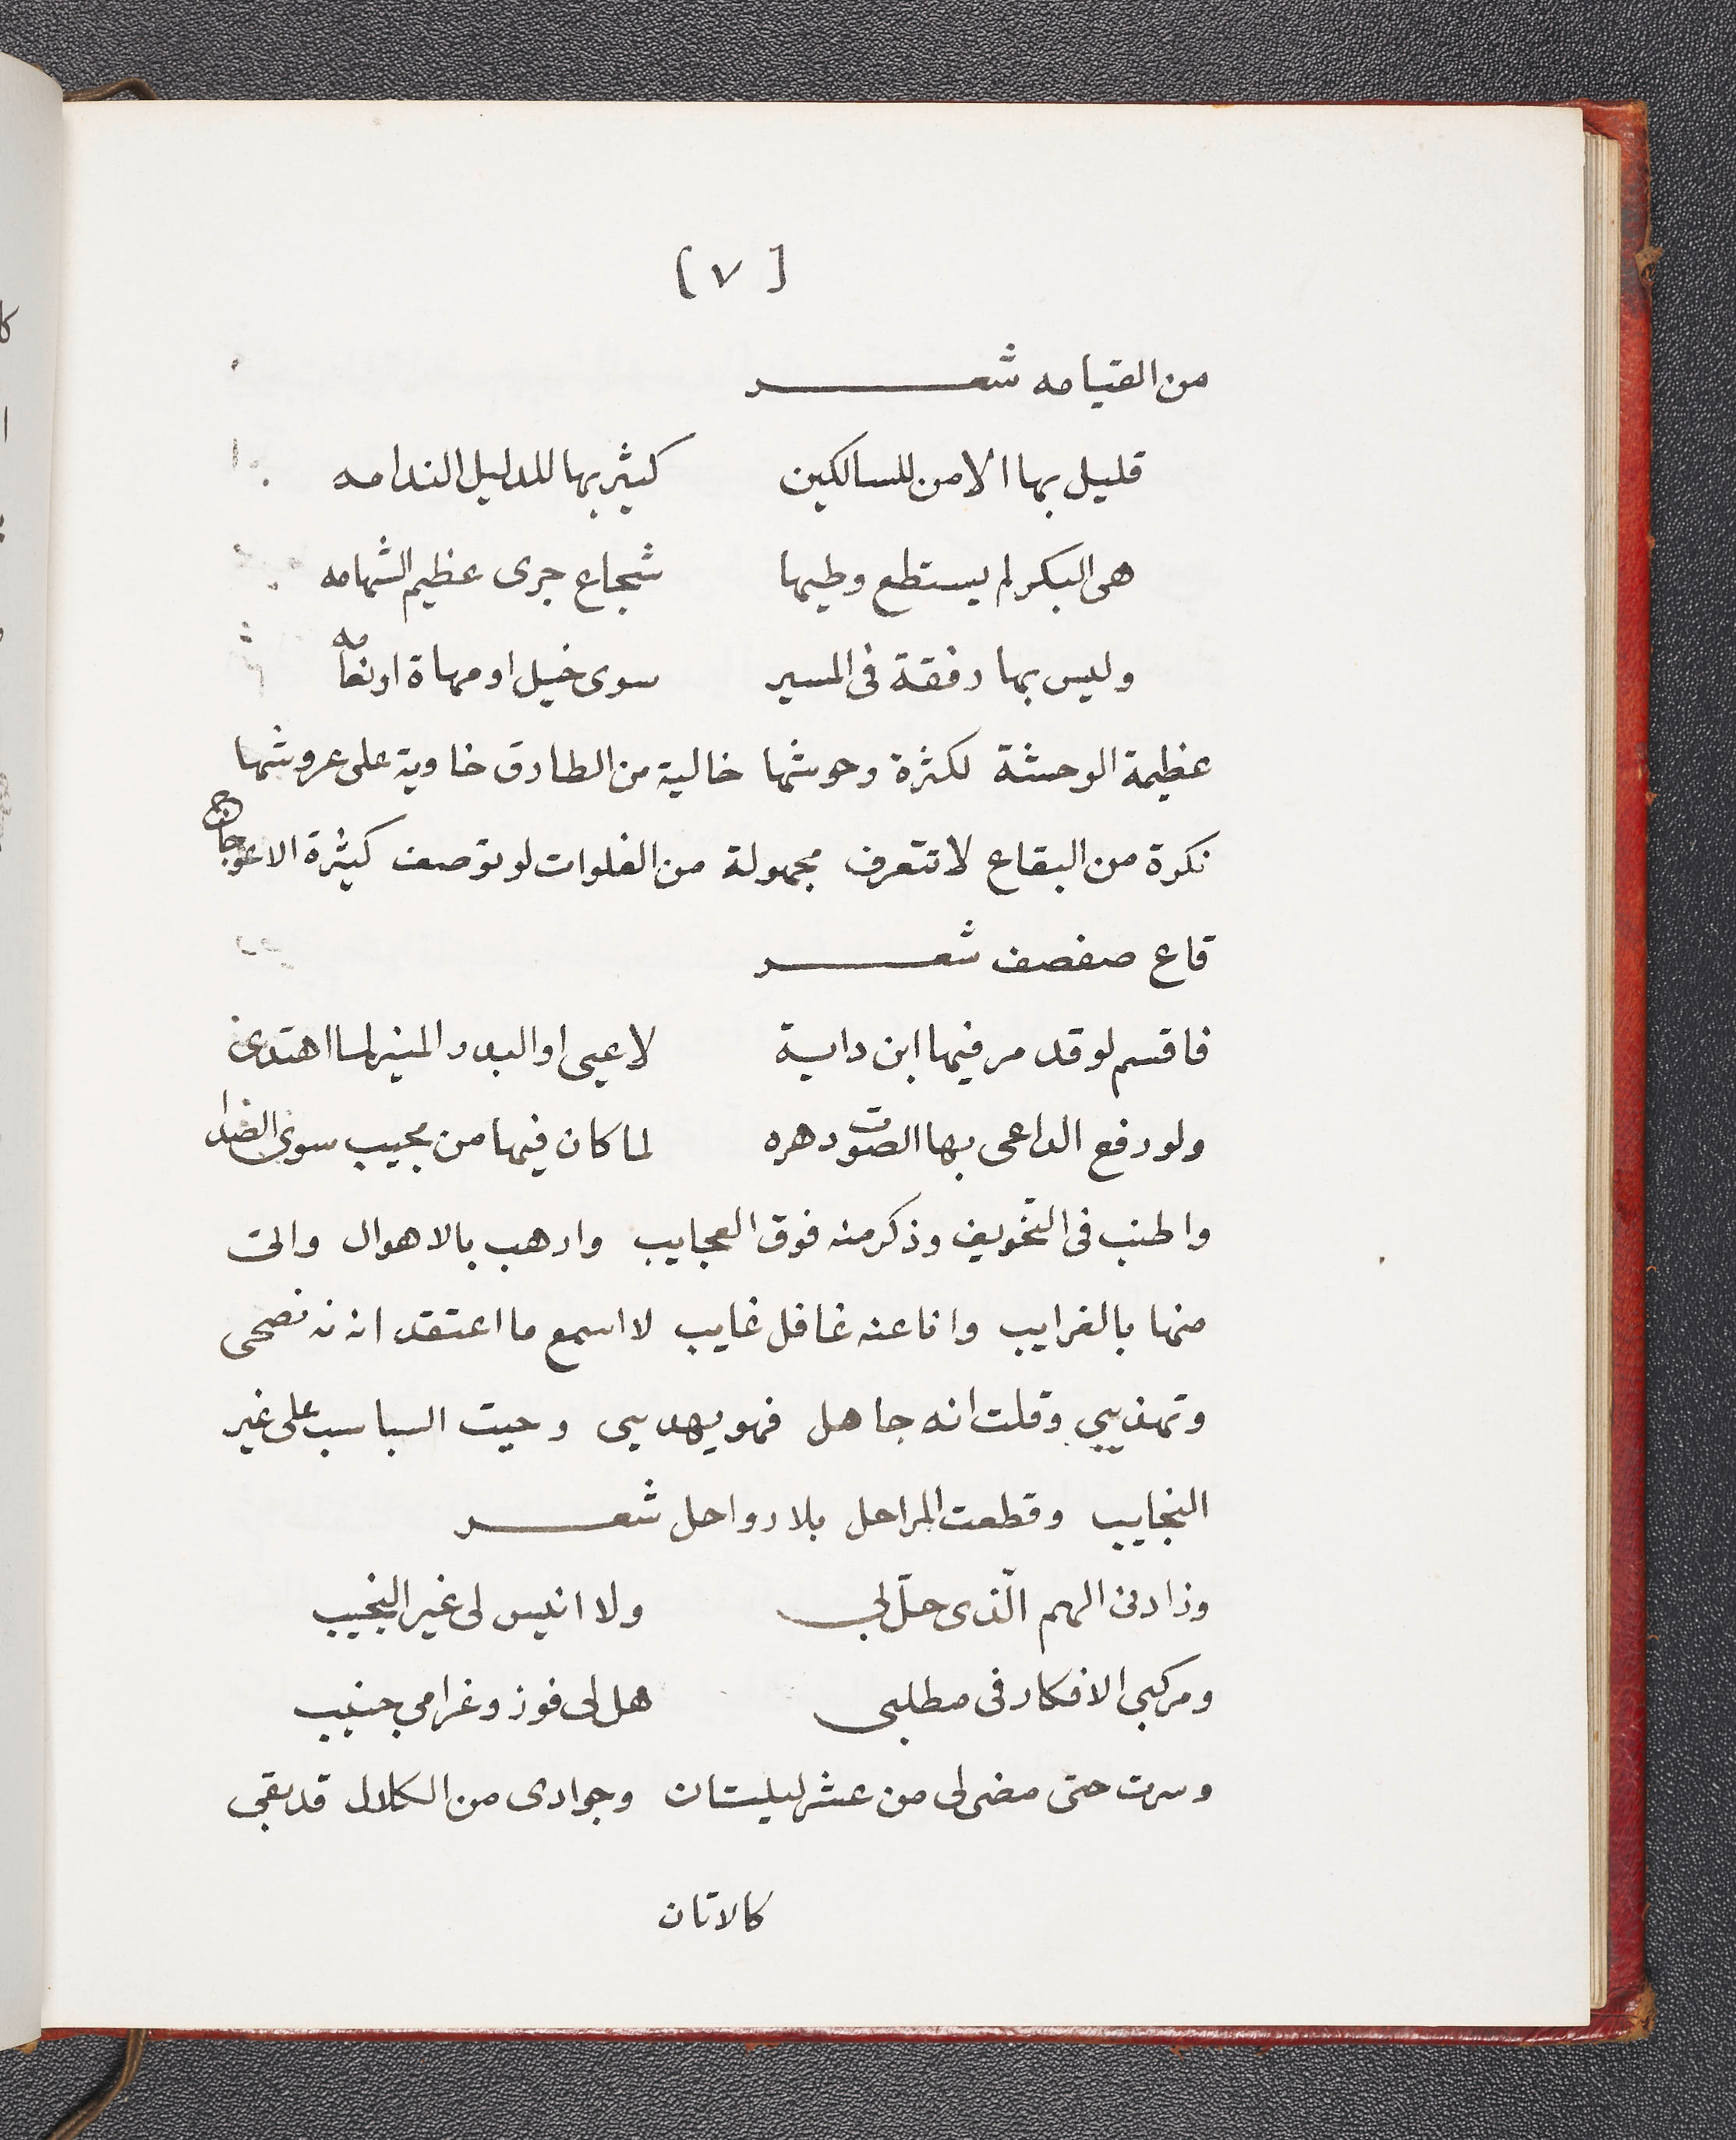 [٧]
من القيامه شعر
قليل بها الامن للسالكين كثير بها للدليل الندامه
هى البكر لم يستطع وطيها شجاع جرى عظيم الشهامه
وليس بها رفقة فى المسير سوى خيل او مهاة او نعامه
عظيمة الوحشة لكثرة وحوشها خالية من الطارق خاوية على عروشها
نكرة من البقاع لا تتعرف مجهولة من الفلوات لو توصف كثيرة الاعوجاج
قاع صفصف شعر
فاقسم لو قد مر فيها ابن داية لاعيى او البدر المنير لما اهتدى
ولو رفع الداعى بها الصوت دهره لما كان فيها من مجيب سوى
واطنب فى التخويف وذكر منه فوق العجايب وارهب بالاهوال واتى
منها بالغرايب وانا عنه غافل غايب لا اسمع ما اعتقد انه نصحى
وتهذيبي وقلت انه جاهل فهو يهديى وجيت السباسب على غير
النجايب وقطعت المراحل بلا رواحل شعر
وزادنى الهم الّذى حلّ لي ولا انيس لى غير النجيب
ومركبي الافكار فى مطلبى هل لى فوز وغرامي جنيب
وسرت حتى مضى لى من عشر ليلتان وجوادى من الكلال قد بقي
كالاتان